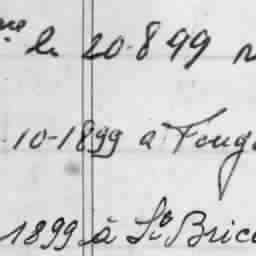 le 20-8 99
10-1899 à Foug
1899 à St Bric